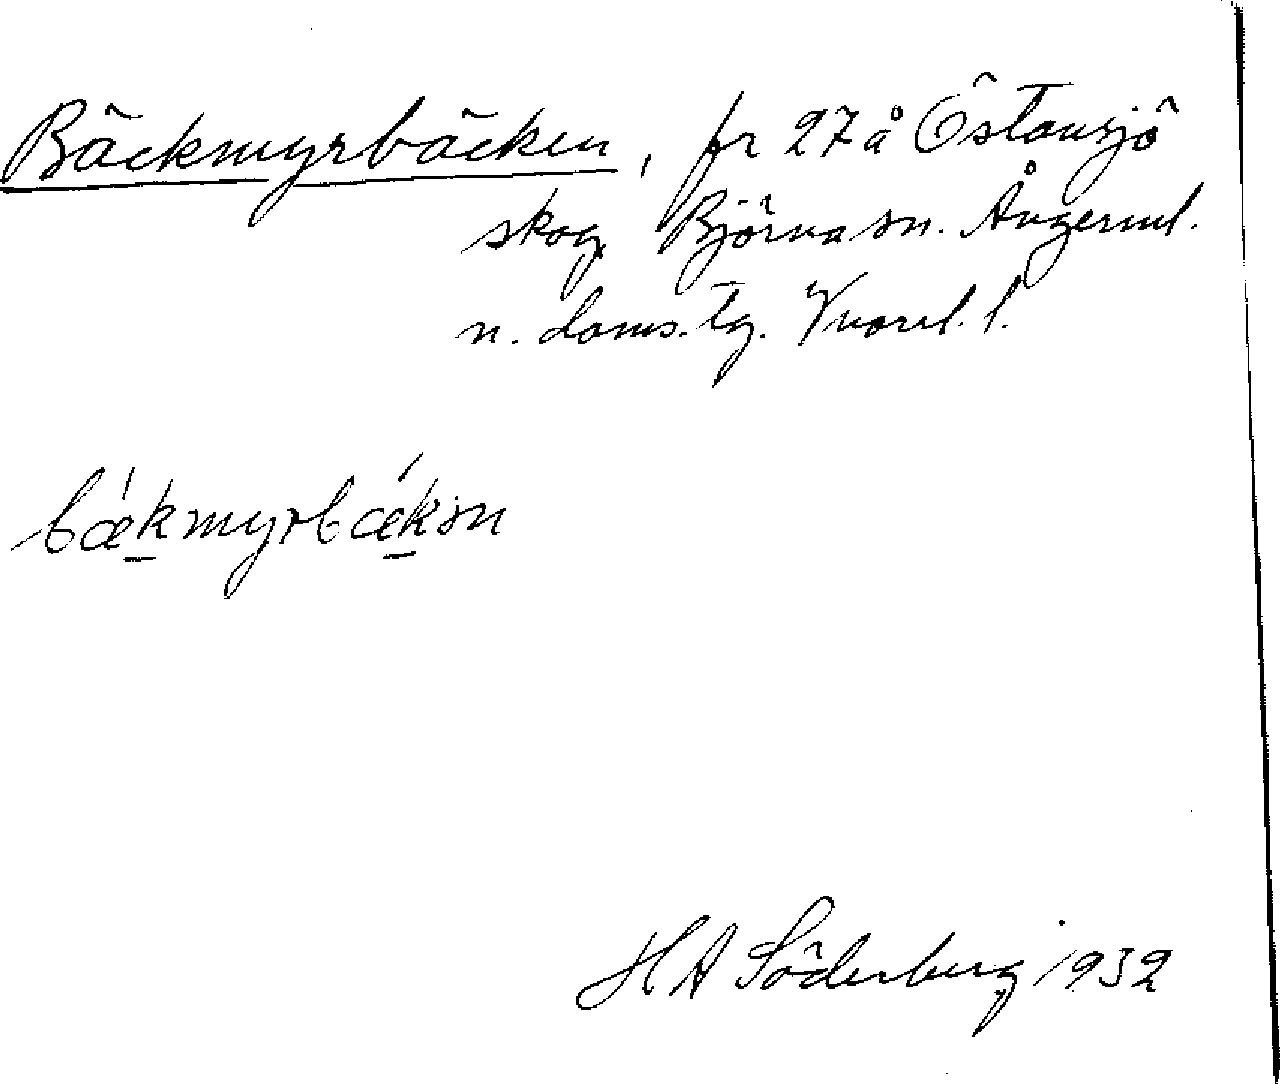 Bäckmyrbäcken, fr 27 å Östansjö
skog, Björna sn. Ångerml.
n. doms. tg. Vnorrl. l.
bǽkmyrbǽkən
H A Söderberg 1932